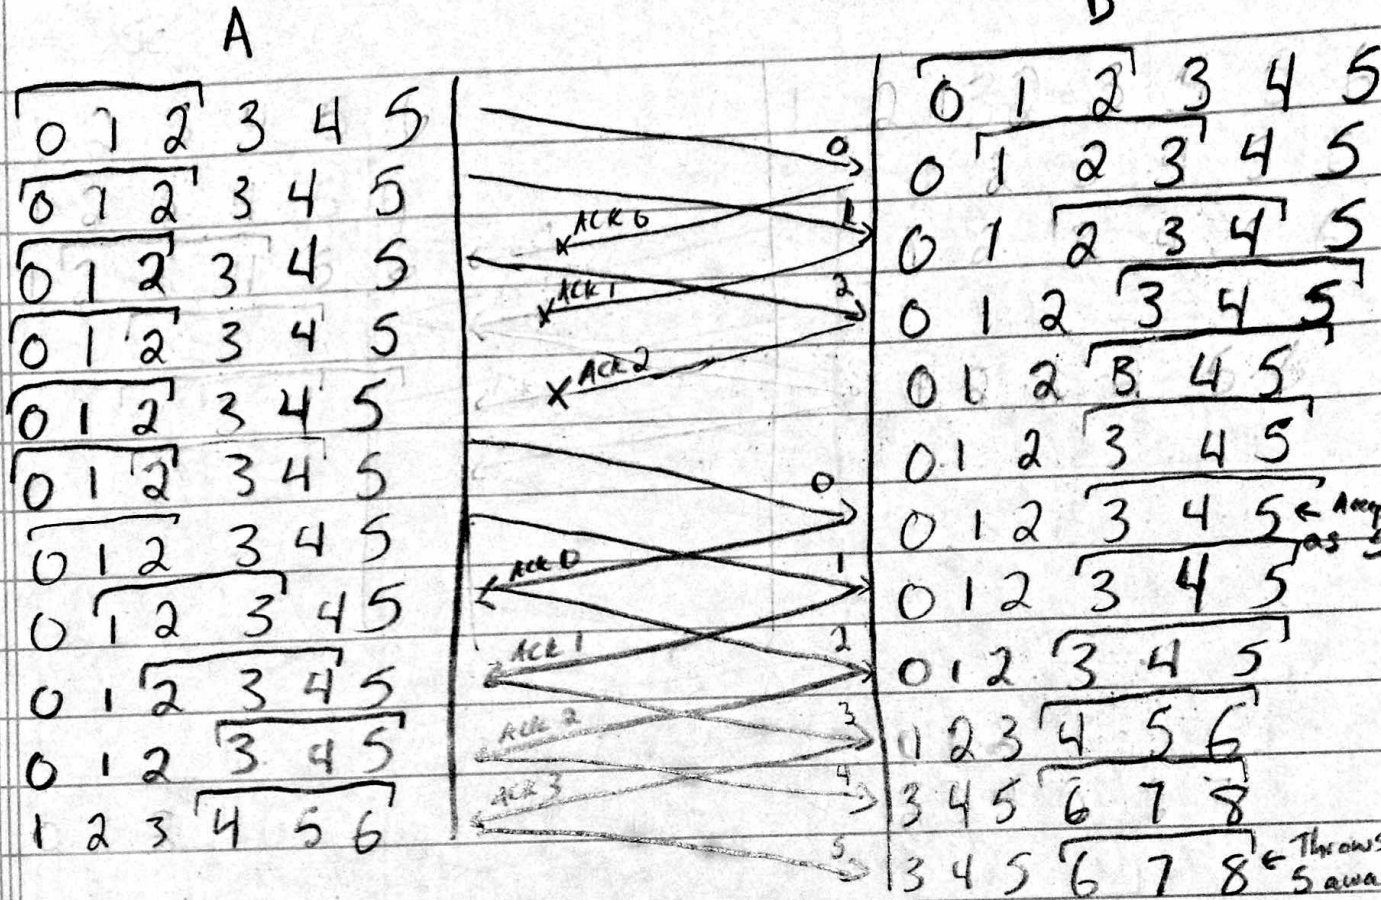 A
0 1 2 3 4 5
0 1 2 3 4 5
0 1 2 3 4 5
0 1 2 3 4 5
0 1 2 3 4 5
0 1 2 3 4 5
0 1 2 3 4 5
0 1 2 3 4 5
0 1 2 3 4 5
0 1 2 3 4 5
1 2 3 4 5 6
0
ACK 0
1
ACK 1
2
ACK 2
0
ACK 0
1
ACK 1
2
ACK 2
3
ACK 3
4
5
0 1 2 3 4 5
0 1 2 3 4 5
0 1 2 3 4 5
0 1 2 3 4 5
0 1 2 3 4 5
0 1 2 3 4 5
0 1 2 3 4 5 ←
as
0 1 2 3 4 5
0 1 2 3 4 5
1 2 3 4 5 6
3 4 5 6 7 8
3 4 5 6 7 8 ← Throws
5